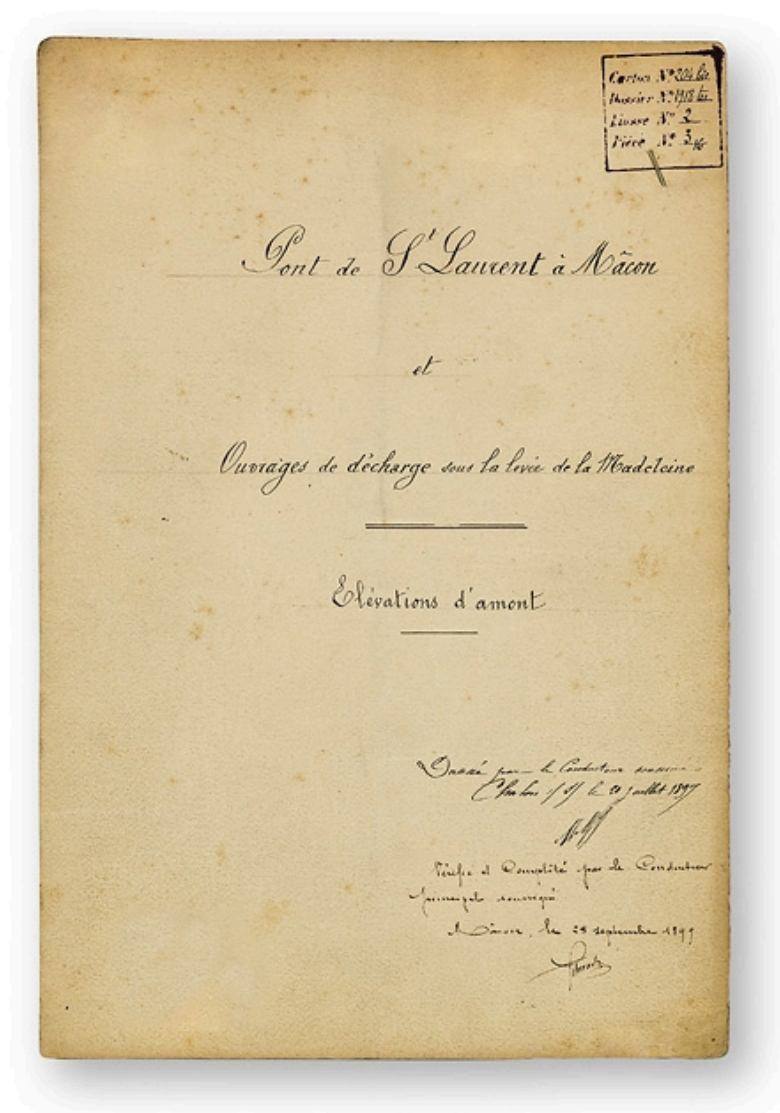 Carton N° 204 bis
Dossier N° 1918 bis
Liasse N° 2
Pièce N° 3
Pont de St Laurent à Mâcon
et
Ouvrages de décharge sous la levée de la Madeleine
Elévations d'amont
Dressé par le Conducteur soussigné
Chalon s/ S/ le 20 juillet 1897
Vérifié et Complété par le Conducteur
principal soussigné
Mâcon, le 28 septembre 1899